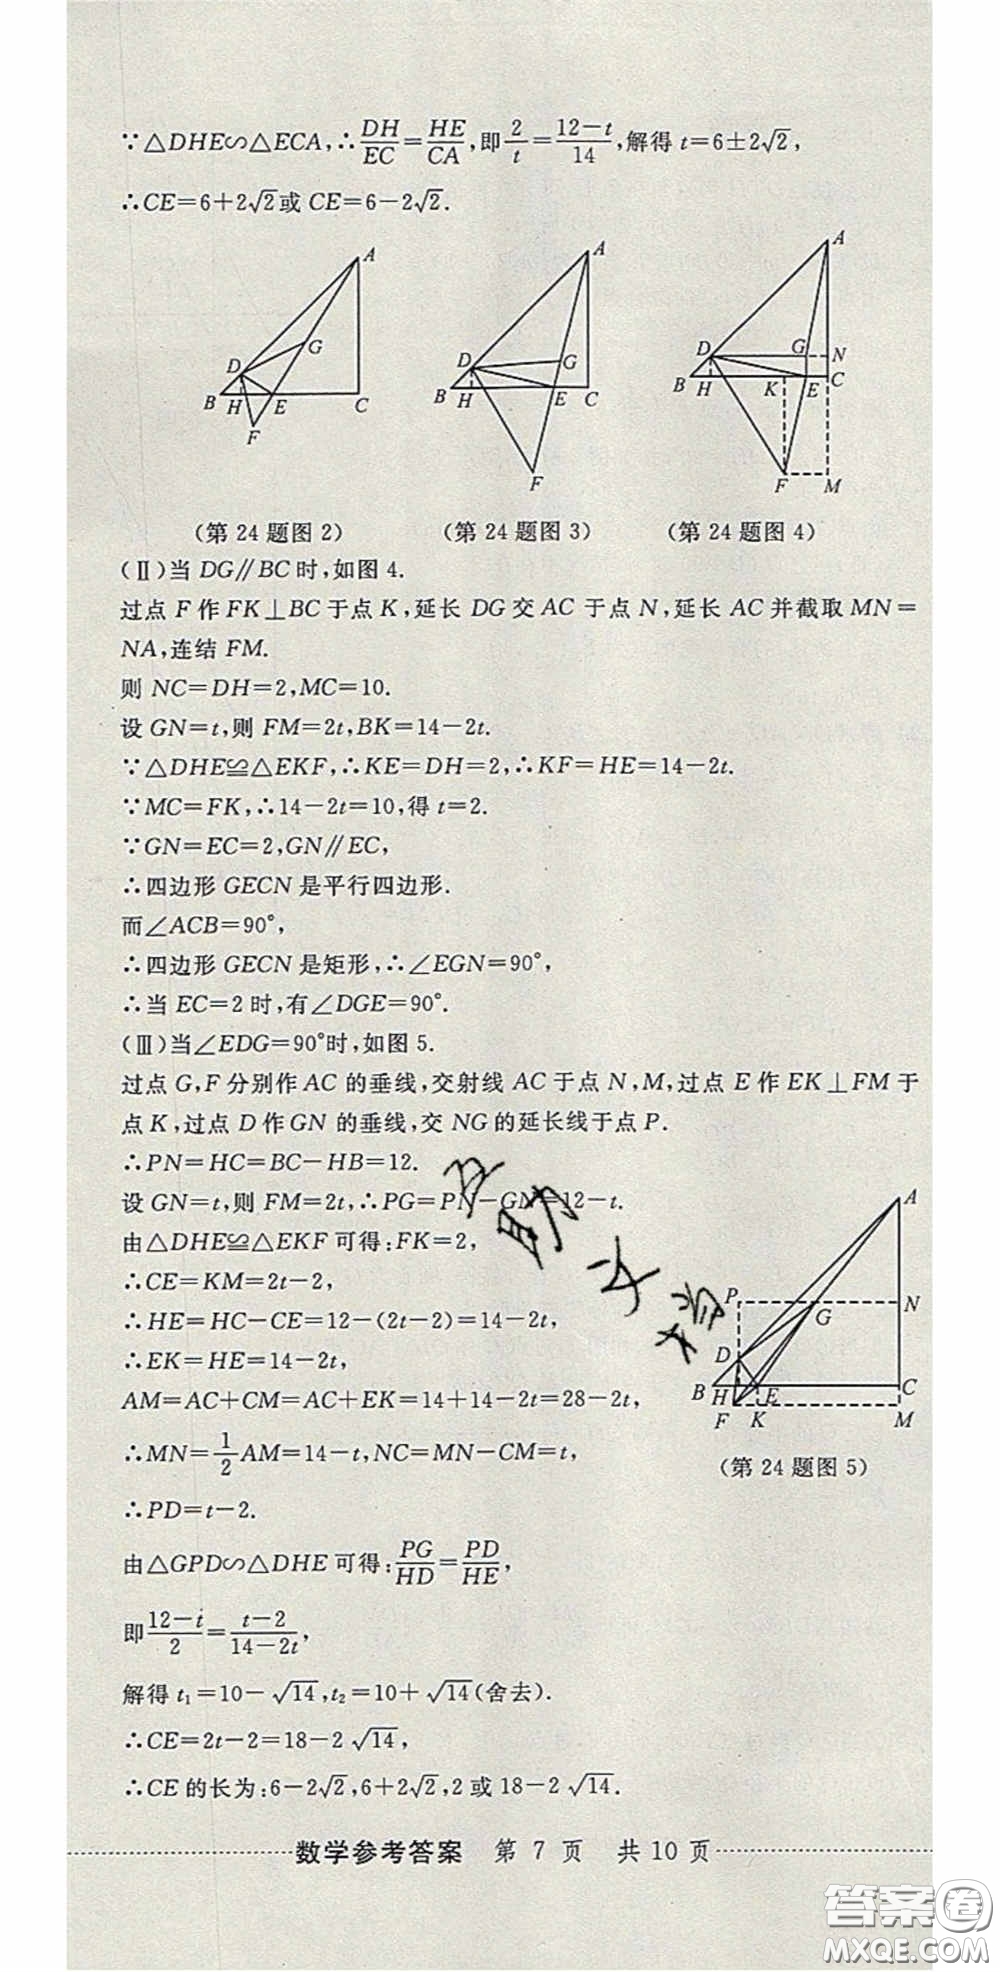 ∵△DHE∽△ECA,∴DH/EC=HE/CA,即2/t=(12-t)/14,解得 t=6±2√2,
∴CE=6+2√2或 CE=6-2√2.
A
D
G
B
H
E
C
F
A
D
G
B
H
E
C
F
A
D
G
N
B
H
K
E
C
F
M
(第 24 题图 2)
(第 24 题图 3)
(第 24 题图 4)
(Ⅱ)当 DG∥BC 时,如图 4.
过点 F 作 FK⊥BC 于点 K,延长 DG 交 AC 于点 N,延长 AC 并截取 MN=
NA,连结 FM.
则 NC=DH=2,MC=10.
设 GN=t,则 FM=2t,BK=14-2t.
∵△DHE≌△EKF,∴KE=DH=2,∴KF=HE=14-2t.
∵MC=FK,∴14-2t=10,得 t=2.
∵GN=EC=2,GN∥EC,
∴四边形 GECN 是平行四边形.
而∠ACB=90°,
∴四边形 GECN 是矩形,∴∠EGN=90°,
∴当 EC=2 时,有∠DGE=90°.
(Ⅲ)当∠EDG=90°时,如图 5.
过点 G,F 分别作 AC 的垂线,交射线 AC 于点 N,M,过点 E 作 EK⊥FM 于
点 K,过点 D 作 GN 的垂线,交 NG 的延长线于点 P.
∴PN=HC=BC-HB=12.
设 GN=t,则 FM=2t,∴PG=PN-GN=12-t.
由△DHE≌△EKF 可得:FK=2,
∴CE=KM=2t-2,
∴HE=HC-CE=12-(2t-2)=14-2t,
∴EK=HE=14-2t,
AM=AC+CM=AC+EK=14+14-2t=28-2t,
∴MN=1/2AM=14-t,NC=MN-CM=t,
∴PD=t-2.
由△GPD∽△DHE 可得:PG/HD=PD/HE,
即(12-t)/2=(t-2)/(14-2t),
解得 t₁=10-√14,t₂=10+√14(舍去).
∴CE=2t-2=18-2√14,
∴CE 的长为:6-2√2,6+2√2,2 或 18-2√14.
A
P
G
N
D
B
H
E
C
F
K
M
(第 24 题图 5)
数学参考答案 第 7 页 共 10 页
答案圈
MXQE.COM